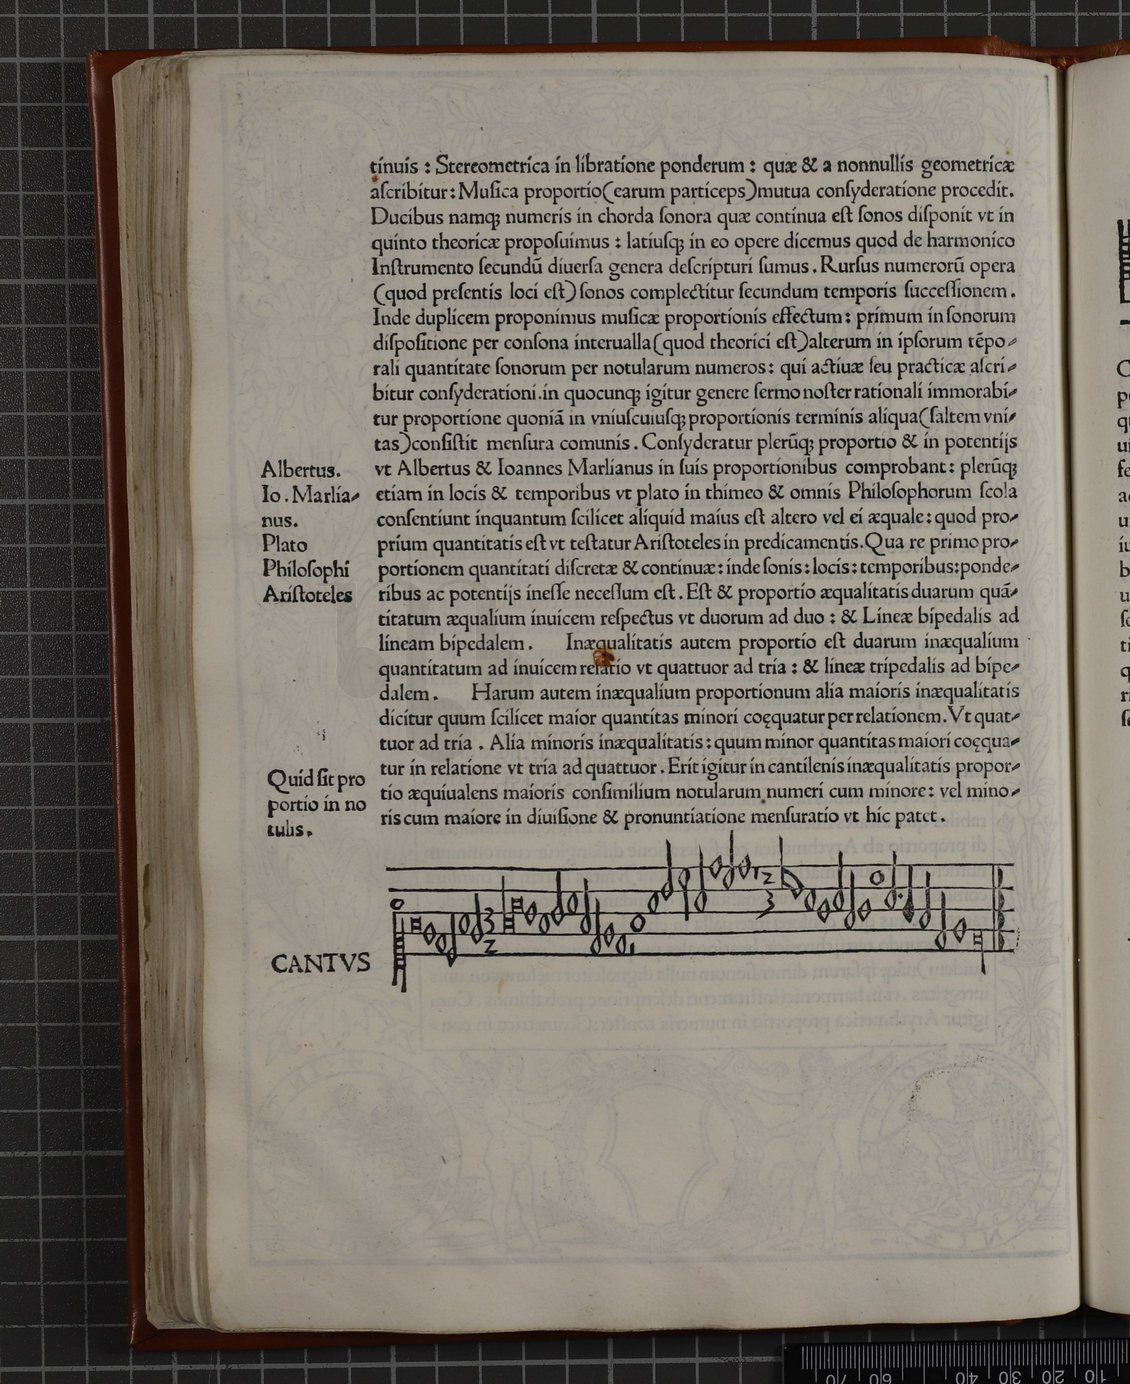 tinuis : Stereometrica in libratione ponderum : quæ & a nonnullis geometricæ
aſcribitur : Muſica proportio(earum particeps)mutua conſyderatione procedit.
Ducibus namqꝫ numeris in chorda ſonora quæ continua eſt ſonos diſponit vt in
quinto theoricæ propoſuimus : latiuſqꝫ in eo opere dicemus quod de harmonico
Inſtrumento ſecundū diuerſa genera deſcripturi ſumus . Rurſus numerorū opera
(quod preſentis loci eſt) ſonos complectitur ſecundum temporis ſucceſſionem .
Inde duplicem proponimus muſicæ proportionis effectum : primum in ſonorum
diſpoſitione per conſona interualla(quod theorici eſt)alterum in ipſorum tēpo⸗
rali quantitate ſonorum per notularum numeros : qui actiuæ ſeu practicæ aſcri⸗
bitur conſyderationi.in quocunqꝫ igitur genere ſermo noſter rationali immorabi⸗
tur proportione quoniā in vniuſcuiuſqꝫ proportionis terminis aliqua(ſaltem vni⸗
tas)conſiſtit menſura comunis . Conſyderatur plerūqꝫ proportio & in potentijs
Albertus. vt Albertus & Ioannes Marlianus in ſuis proportionibus comprobant : plerūqꝫ
Io . Marlia⸗ etiam in locis & temporibus vt plato in thimeo & omnis Philoſophorum ſcola
nus. conſentiunt inquantum ſcilicet aliquid maius eſt altero vel ei æquale : quod pro⸗
Plato prium quantitatis eſt vt teſtatur Ariſtoteles in predicamentis.Qua re primo pro⸗
Philoſophi portionem quantitati diſcretæ & continuæ : inde ſonis : locis : temporibus : ponde⸗
Ariſtoteles ribus ac potentijs ineſſe neceſſum eſt . Eſt & proportio æqualitatis duarum quā⸗
titatum æqualium inuicem reſpectus vt duorum ad duo : & Lineæ bipedalis ad
lineam bipedalem . Inæqualitatis autem proportio eſt duarum inæqualium
quantitatum ad inuicem relatio vt quattuor ad tria : & lineæ tripedalis ad bipe⸗
dalem . Harum autem inæqualium proportionum alia maioris inæqualitatis
dicitur quum ſcilicet maior quantitas minori coęquatur per relationem . Vt quat⸗
tuor ad tria . Alia minoris inæqualitatis : quum minor quantitas maiori coęqua⸗
Quid ſit pro tur in relatione vt tria ad quattuor . Erit igitur in cantilenis inæqualitatis propor⸗
portio in no tio æquiualens maioris conſimilium notularum numeri cum minore : vel mino⸗
tulis. ris cum maiore in diuiſione & pronuntiatione menſuratio vt hic patet .
CANTVS 3 2 2 3